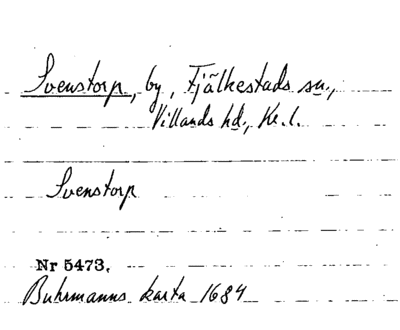 Svenstorp, by, Fjälkestads sn.,
Villands hd., Kr. l.
Svenstorp
Nr 5473.
Buhrmanns karta 1684